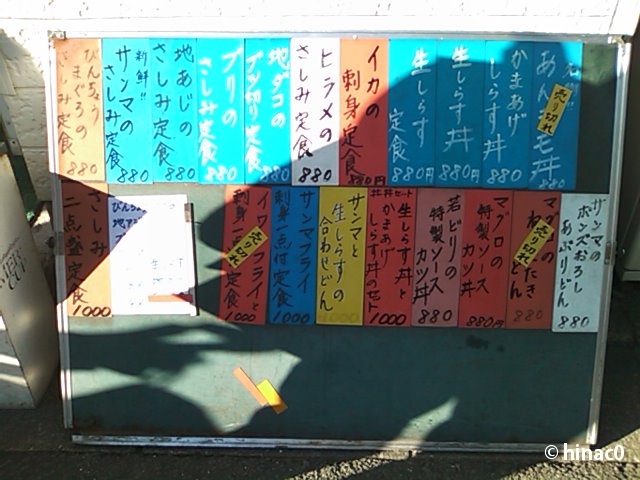 名物!!
あん
モ丼
880
売り切れ
かまあげ
しらす丼
880
生しらす丼
880円
生しらす
定食
880円
イカの
刺身定食
880円
ヒラメの
さしみ定食
880
地ダコの
ブツ切り定食
880
ブリの
さしみ定食
880
地あじの
さしみ定食
880
新鮮!!
サンマの
さしみ定食
880
びんちょう
まぐろの
さしみ定食
880
サンマの
ポンズおろし
あぶりどん
880
マグロの
たき
どん
880
売り切れ
マグロの
特製ソース
カツ丼
880円
若どりの
特製ソース
カツ丼
880
丼丼セット
生しらす丼と
かまあげ
しらす丼のセット
1000
サンマと
生しらすの
合わせどん
1000
サンマフライ
刺身一点付定食
1000
イワシフライと
刺身一点
定食
1000
売り切れ
さしみ
二点盛定食
1000
© hinac0